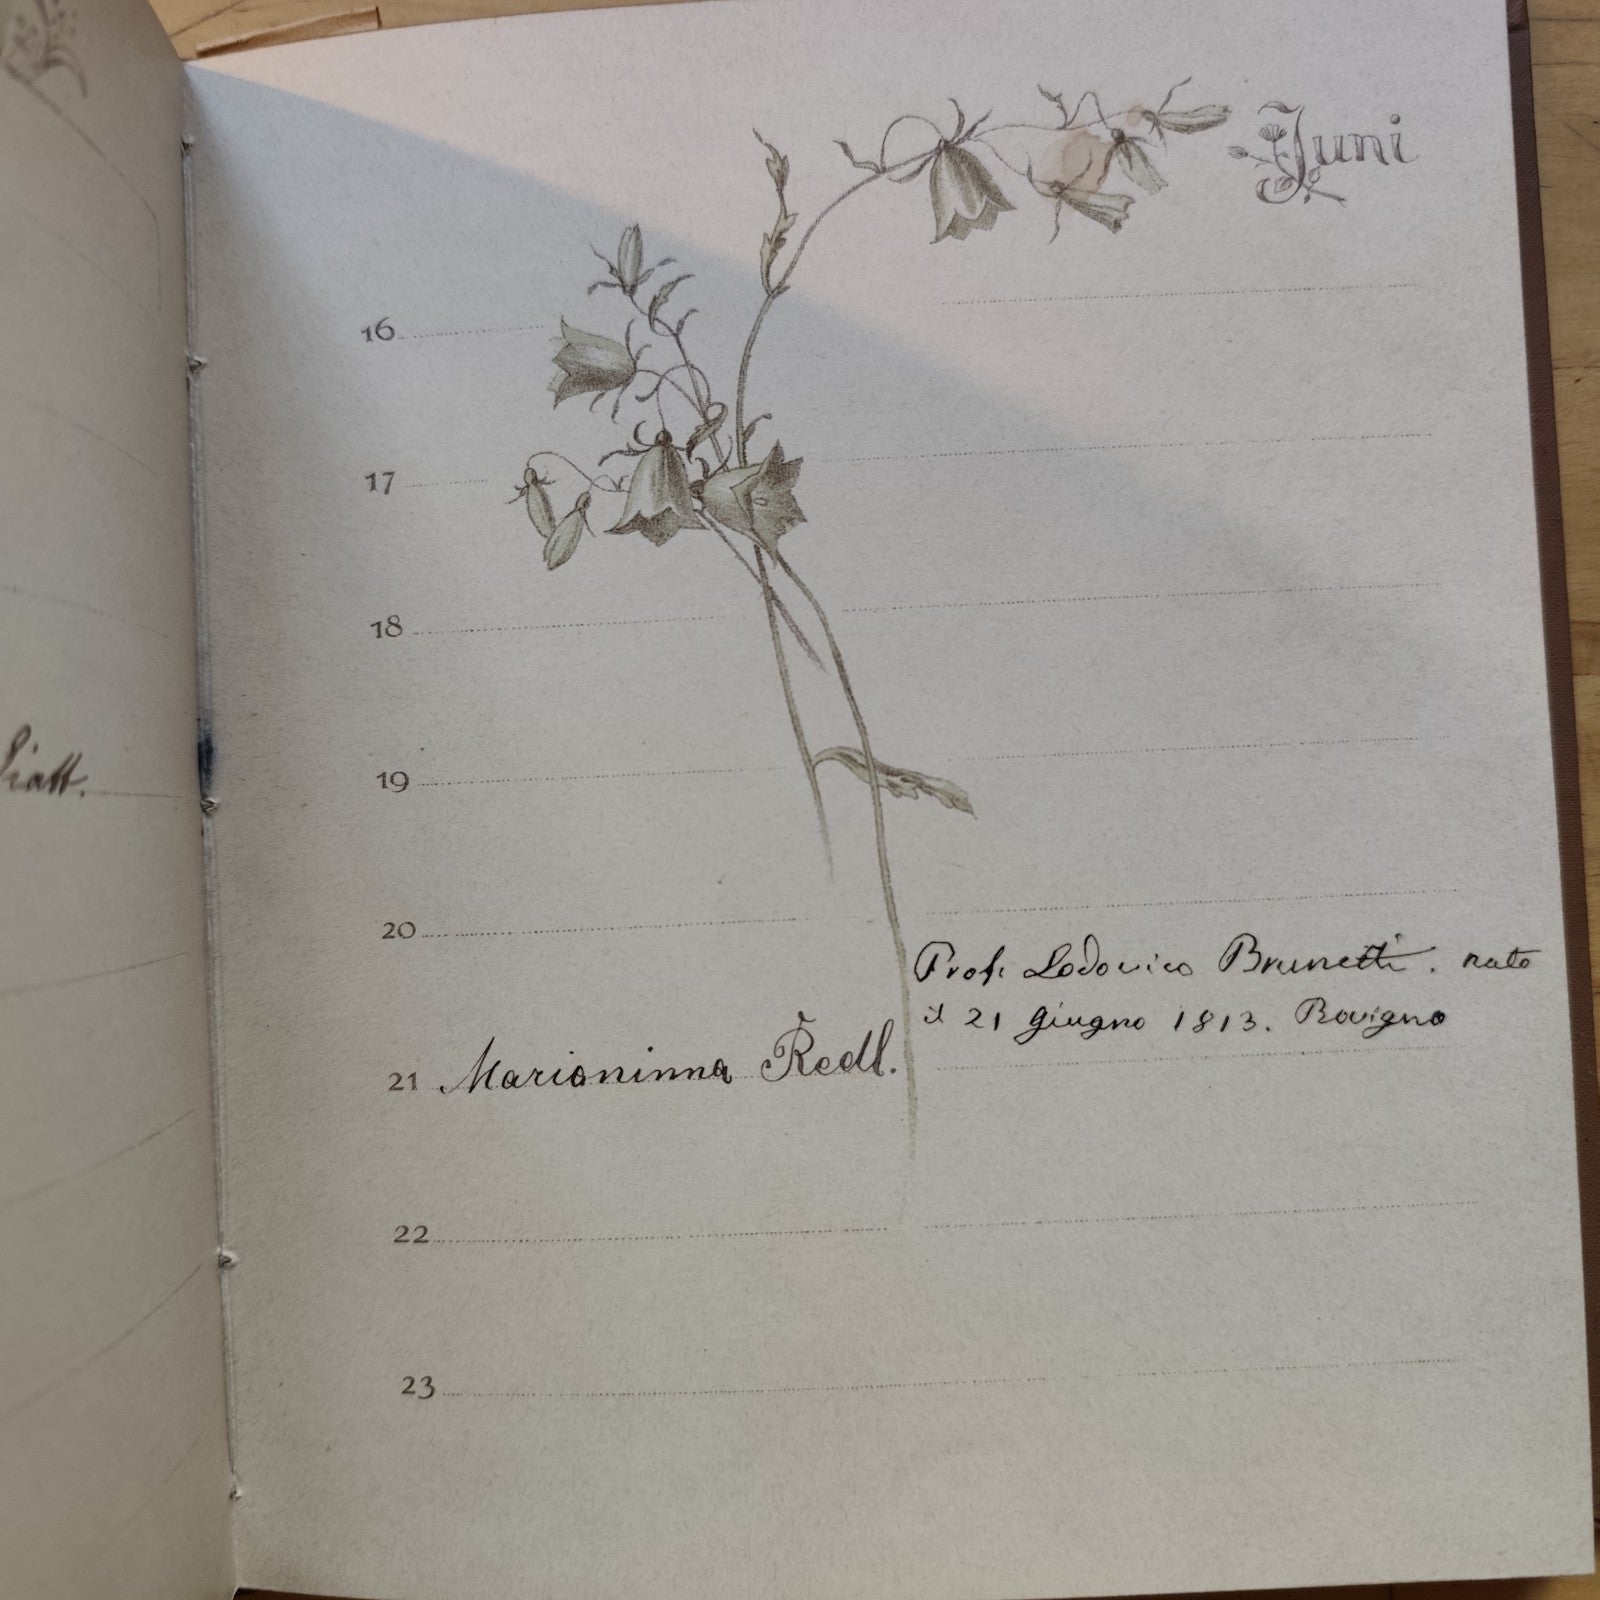 Juni
16
17
18
19
20
Prof. Lodovico Brunetti. nato
il 21 giugno 1813. Rovigno
21 Marianinna Redl.
22
23